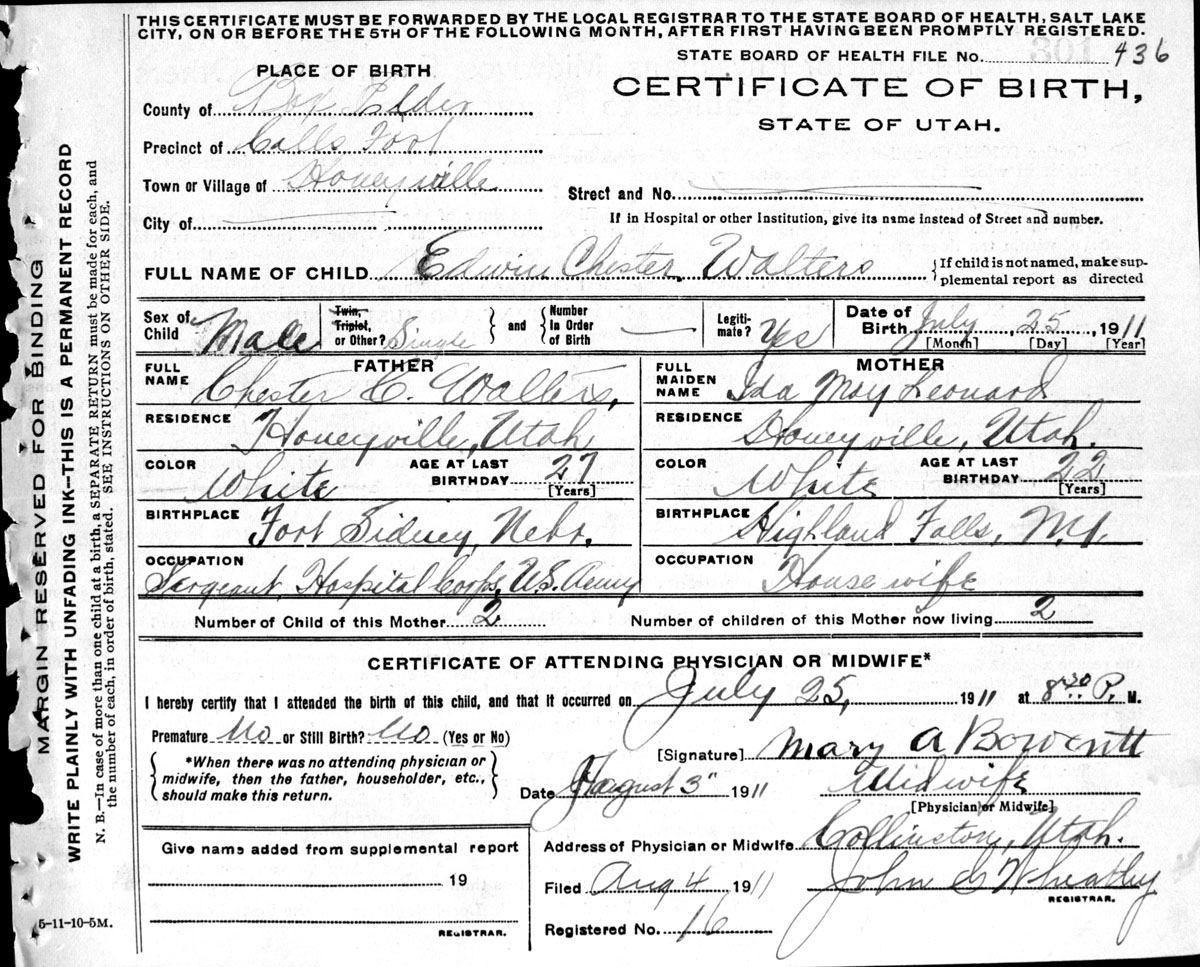 THIS CERTIFICATE MUST BE FORWARDED BY THE LOCAL REGISTRAR TO THE STATE BOARD OF HEALTH, SALT LAKE
CITY, ON OR BEFORE THE 5TH OF THE FOLLOWING MONTH, AFTER FIRST HAVING BEEN PROMPTLY REGISTERED.
STATE BOARD OF HEALTH FILE No. 436
PLACE OF BIRTH
CERTIFICATE OF BIRTH,
STATE OF UTAH.
County of Box Elder
Precinct of Calls Fort
Town or Village of Honeyville
Street and No.
City of
If in Hospital or other Institution, give its name instead of Street and number.
FULL NAME OF CHILD Edwin Chester Walters
{If child is not named, make sup-
plemental report as directed
Sex of Child Male
Twin, Triplet, or Other? Single
and
Number In Order of Birth
Legiti-mate? Yes
Date of Birth July 25, 1911
[Month] [Day] [Year]
FATHER
FULL NAME Chester C. Walters,
RESIDENCE Honeyville, Utah
COLOR White
AGE AT LAST BIRTHDAY 27
[Years]
BIRTHPLACE Fort Sidney, Nebr.
OCCUPATION Sergeant, Hospital Corps, U.S. Army
MOTHER
FULL MAIDEN NAME Ida May Leonard
RESIDENCE Honeyville, Utah.
COLOR White
AGE AT LAST BIRTHDAY 22
[Years]
BIRTHPLACE Highland Falls, N.Y.
OCCUPATION Housewife
Number of Child of this Mother 2
Number of children of this Mother now living 2
CERTIFICATE OF ATTENDING PHYSICIAN OR MIDWIFE*
I hereby certify that I attended the birth of this child, and that it occurred on July 25, 1911 at 8 30 P. M.
Premature No or Still Birth? No (Yes or No)
*When there was no attending physician or
midwife, then the father, householder, etc.,
should make this return.
[Signature] Mary A
Date August 3" 1911
Midwife
[Physician or Midwife]
Address of Physician or Midwife Collinston, Utah.
Give name added from supplemental report
19
REGISTRAR.
Filed Aug 4 1911
John C Wheatley
REGISTRAR.
Registered No. 16
5-11-10-5M.
MARGIN RESERVED FOR BINDING
WRITE PLAINLY WITH UNFADING INK—THIS IS A PERMANENT RECORD
N. B.—In case of more than one child at a birth, a SEPARATE RETURN must be made for each, and
the number of each, in order of birth, stated. SEE INSTRUCTIONS ON OTHER SIDE.